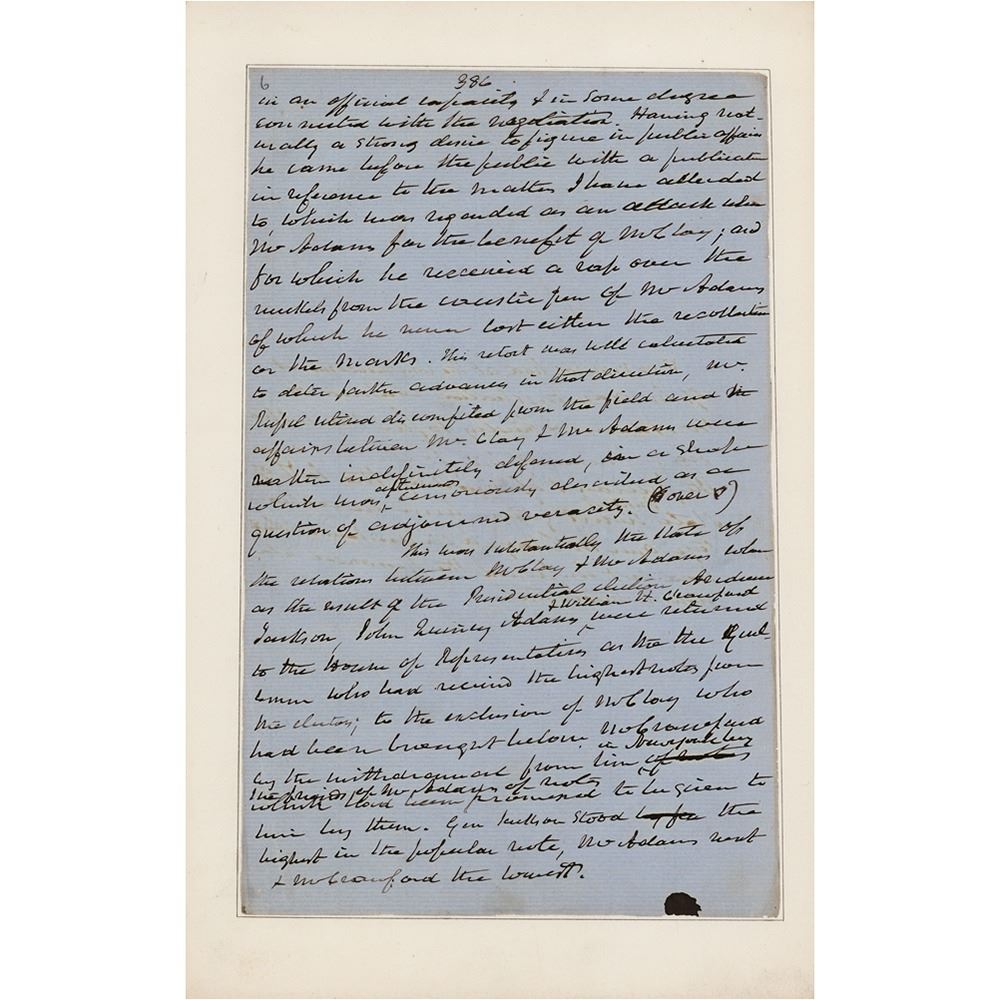 6 386
in an official capacity & in some degree
connected with the negotiation. Having nat-
urally a strong desire to figure in public affairs
he came before the public with a publication
in reference to the matter I have alluded
to, which was regarded as an attack upon
Mr Adams for the benefit of Mr Clay; and
for which he received a rap over the
nuckels from the caustic pen of Mr Adams
of which he never lost either the recollection
or the marks. This retort was well calculated
to deter further advances in that direction, Mr.
Russel retired discomfited from the field and the
affairs between Mr. Clay & Mr Adams were
indefinitely defered, in a shape
which was afterwards censoriously described as a
question of adjourned veracity. (over)
This was substantially the state of
the relations between Mr Clay & Mr Adams when
as the result of the Presidential election Andrew
Jackson, John Quincy Adams & William H. Crawford were returned
to the House of Representatives as the three Gentl-
emen who had received the highest votes from
the electors; to the exclusion of Mr Clay who
had been brought below Mr Crawford
by the withdrawal from him in New York by
the friends of Mr Adams of votes
which had been promised to be given to
him by them. Gen Jackson stood the
highest in the popular vote, Mr Adams next
& Mr Crawford the lowest.